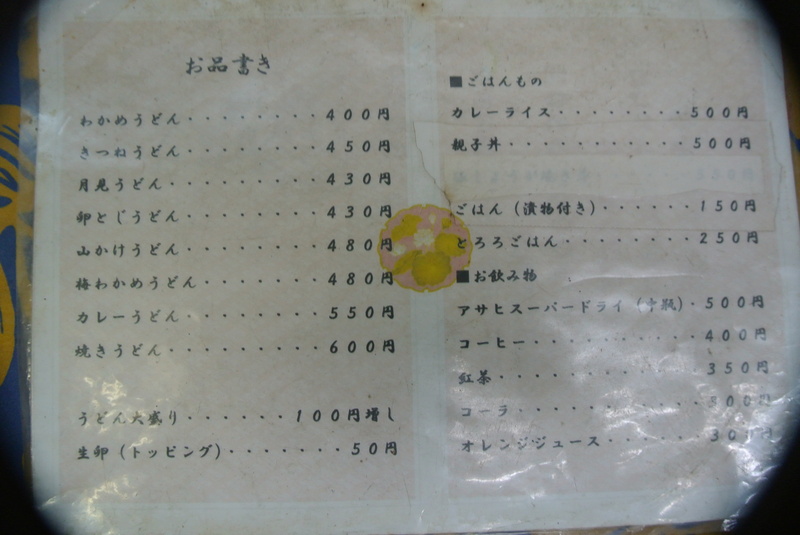 お品書き
わかめうどん・・・・・・・・400円
きつねうどん・・・・・・・・450円
月見うどん・・・・・・・・・430円
卵とじうどん・・・・・・・・430円
山かけうどん・・・・・・・・480円
梅わかめうどん・・・・・・・480円
カレーうどん・・・・・・・・550円
焼きうどん・・・・・・・・・600円
うどん大盛り・・・・・・100円増し
生卵(トッピング)・・・・・・・50円
■ごはんもの
カレーライス・・・・・・・・500円
親子丼・・・・・・・・・・・500円
ごはん(漬物付き)・・・・・・150円
とろろごはん・・・・・・・・250円
■お飲み物
アサヒスーパードライ(中瓶)・500円
コーヒー・・・・・・・・・・400円
紅茶・・・・・・・・・・・・350円
コーラ・・・・・・・・・・・300円
オレンジジュース・・・・・・300円